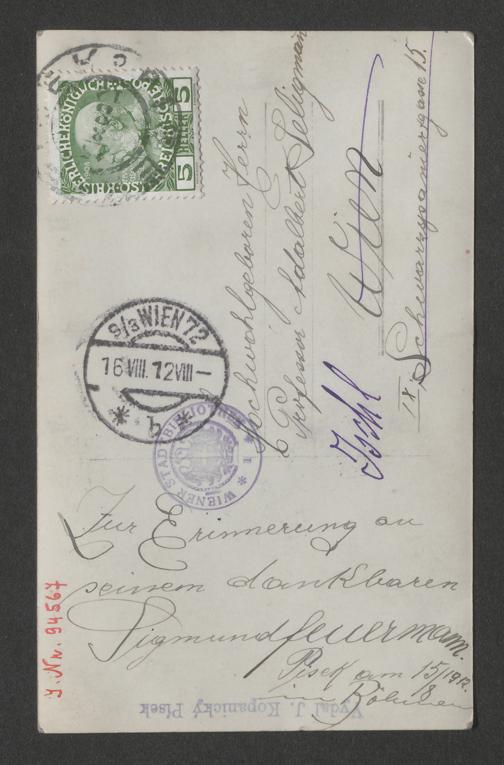 5 HELLER 5
KAISERLICHE KÖNIGLICHE ÖSTERREICHISCHE
Hochwohlgeboren Herrn
Professor Adalbert Seligmann
Wien
IX, Schwarzspanierstrasse 15.
Ischl
9/3 WIEN 72
16 VIII. 12 VIII–
* q *
WIENER STADTBIBLIOTHEK * 1 *
Zur Erinnerung an
seinem dankbaren
Sigmund Feuermann.
Pisek am 15/8 1912.
in Böhmen
Vydal J. Kopanický Písek
J. Nr. 94567